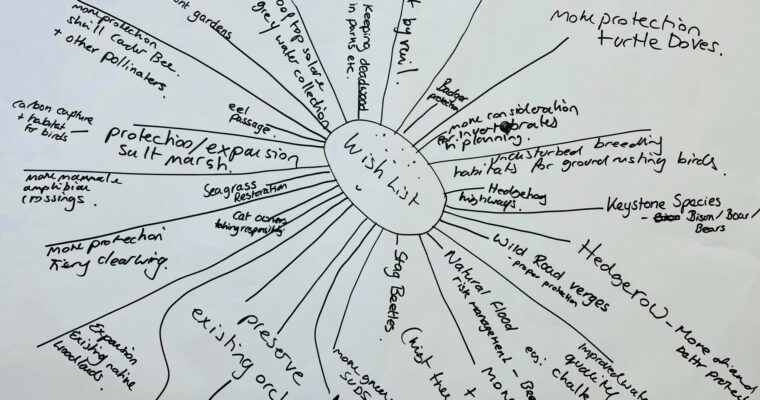 Wish List
more protection
shrill Carder Bee.
+ other pollinators.
gardens
roof top solar
grey water collection
Keeping deadwood
in parks etc.
by rail.
Badger
protection
more protection
turtle Doves.
more consideration
for invertebrates
in planning.
undisturbed breeding
habitats for ground nesting birds.
Hedgehog
highways.
Keystone Species
- Bison/Boar/
Bears
Wild Road verges
- proper protection
Hedgerow - More
better
Improved
quality
Natural flood
risk management -
eg: chalk
+
Stag Beetles.
more green
SUDS
preserve
existing
Expansion
Existing native
woodlands.
more protection
Fiery clearwing.
Cat owners
taking responsibility
Seagrass
Restoration
more mammal
amphibian
crossings.
protection/expansion
salt marsh.
carbon capture
+ habitat
for birds
eel
passage.